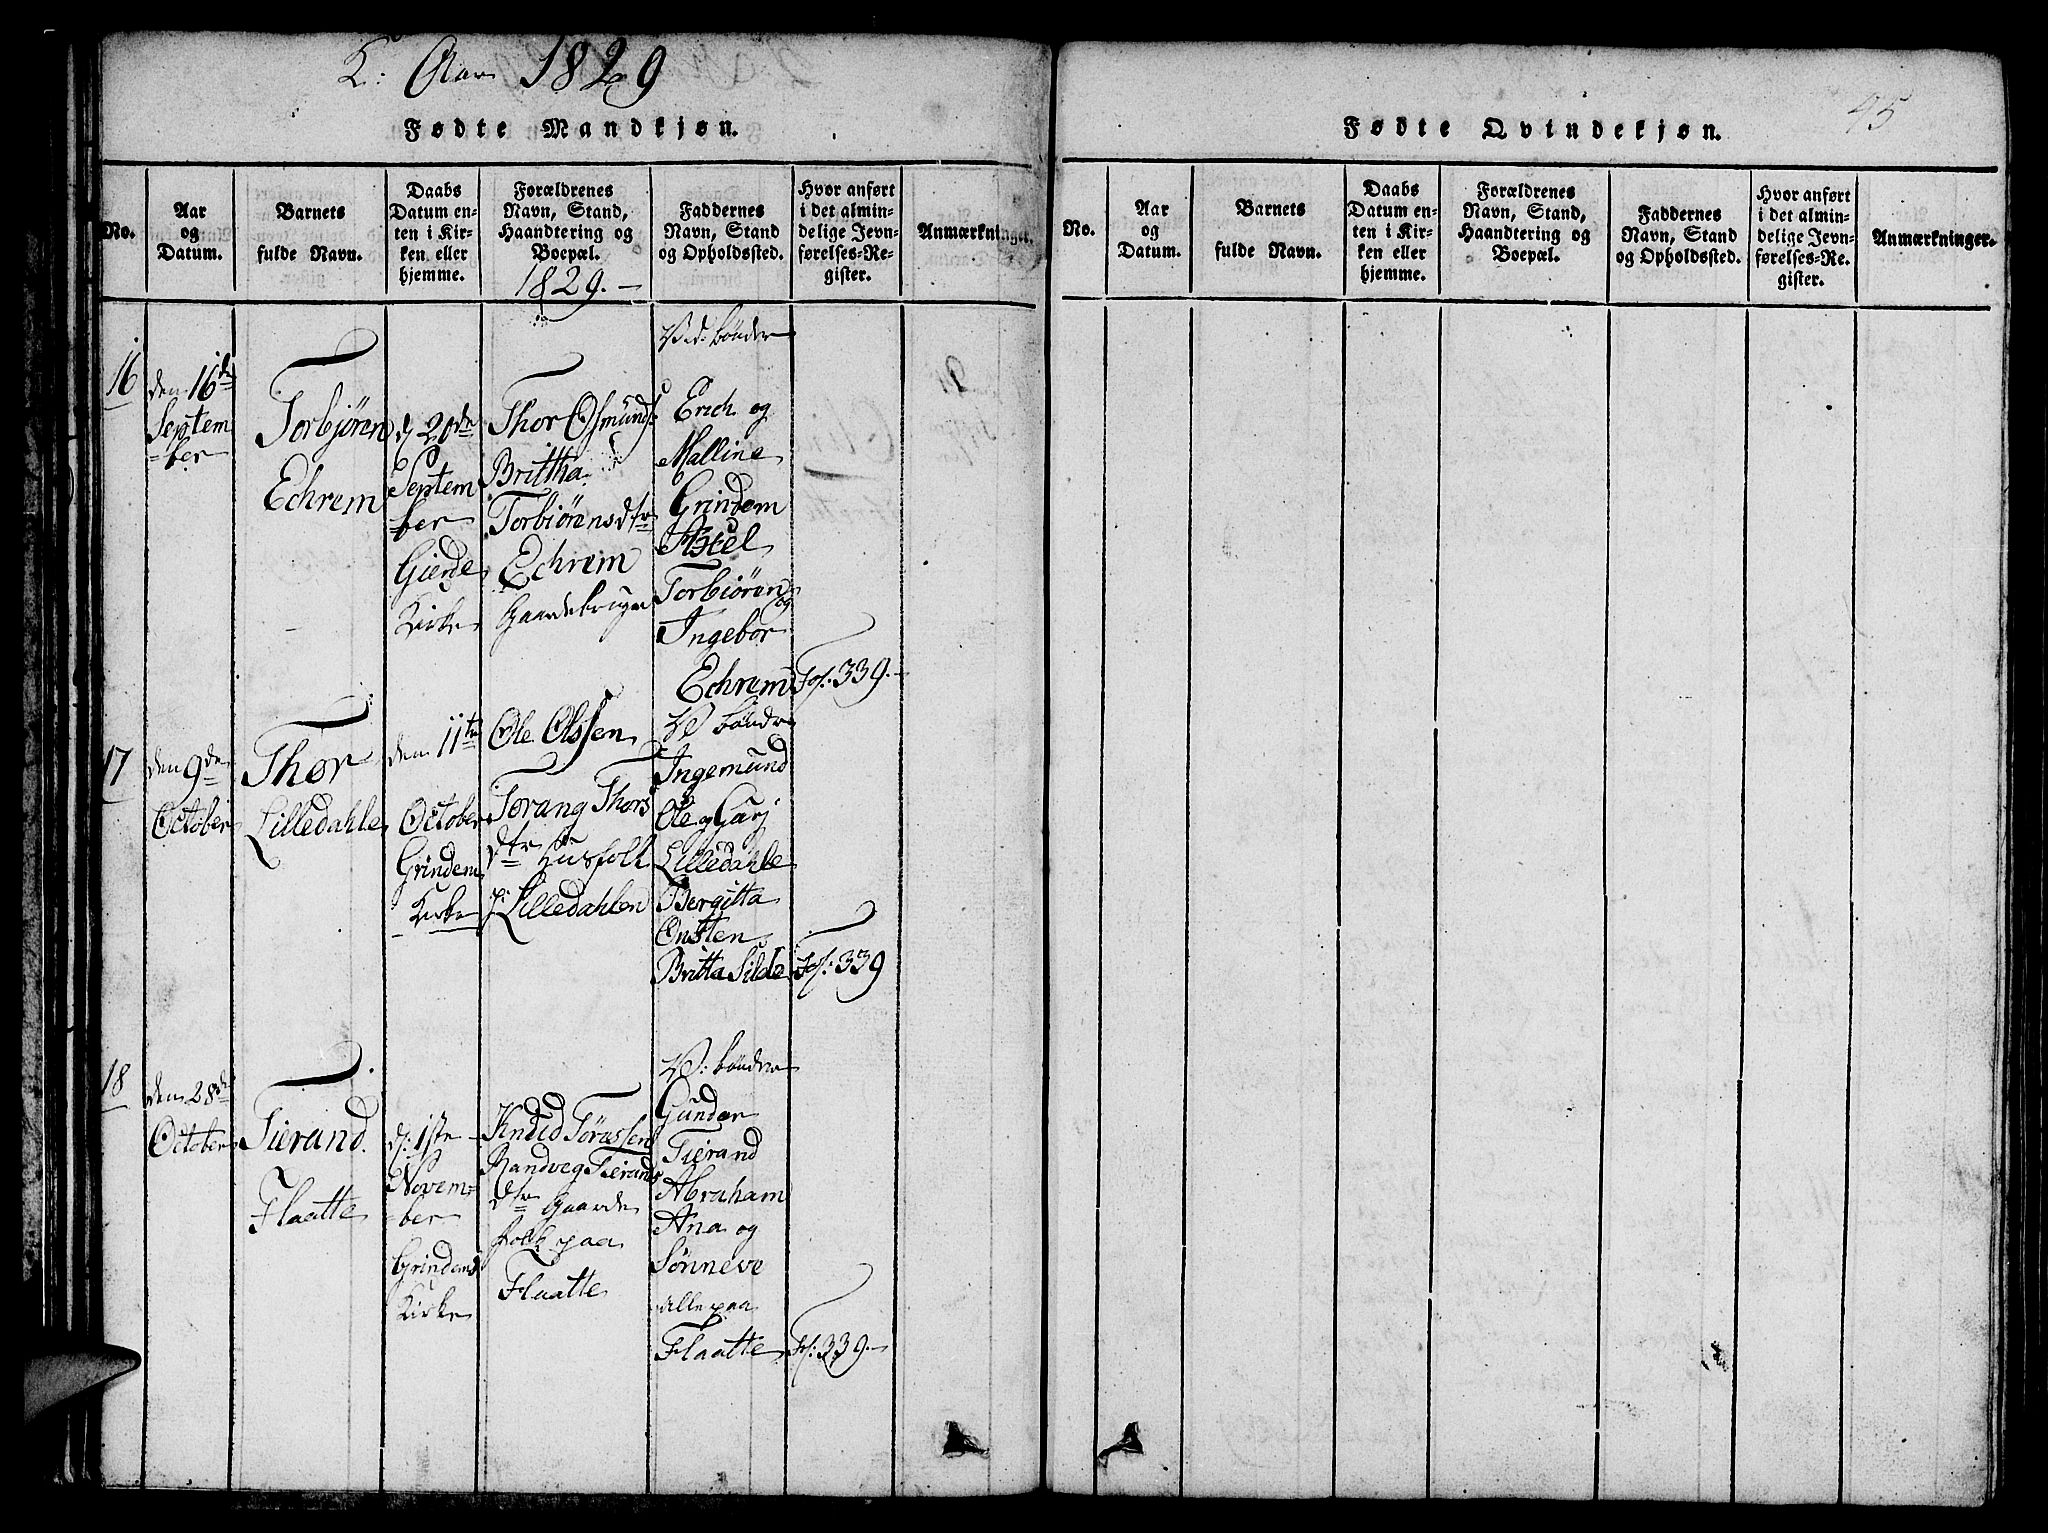 Aar 1829
Fødte Mandkjøn.
No.
Aar
og
Datum.
Barnets
fulde Navn.
Daabs
Datum en-
ten i Kir-
ken eller
hjemme.
Forældrenes
Navn, Stand,
Haandtering og
Boepæl.
1829.
Faddernes
Navn, Stand
og Opholdssted.
Hvor anført
i det almin-
delige Jevn-
førelses-Re-
gister.
Anmærkninger.
16
den 16de
Septem
=ber
Torbjøren
Echrem
d 20de
Septem
ber
Gierde
Kirke
Thor Osmunds:
Brittha
Torbiørensdtr
Echrem
Gaardebruger
bønder
Erich og
Malline
Grindem
Axcel
Torbiøren
og
Ingebor
Echrem
Fol: 339.
17
den 9de
October
Thor
Lilledahle
den 11te
October
Grindem
Kirke
Ole Olssen
Torang Thors
dtr Husfolk
p: Lilledahlen
bønder
Ingemund
Ole og Gurj
Lilledahle
Bergitta
Onsten
Britta Silde
Fol: 339
18
den 28de
October
Tierand
Flaatte
d: 1ste
Novem=
=ber
Grindem
Kirke
Knud Toressen
Randveg Tierands
dtr Gaarde
folk paa
Flaatte
bønder
Gunder
Tierand
Abraham
Ana og
Sønneve
alle paa
Flaatte
Fol: 339.
45
Fødte Qvindekjøn.
No.
Aar
og
Datum.
Barnets
fulde Navn.
Daabs
Datum en-
ten i Kir-
ken eller
hjemme.
Forældrenes
Navn, Stand,
Haandtering og
Boepæl.
Faddernes
Navn, Stand
og Opholdssted.
Hvor anført
i det almin-
delige Jevn-
førelses-Re-
gister.
Anmærkninger.